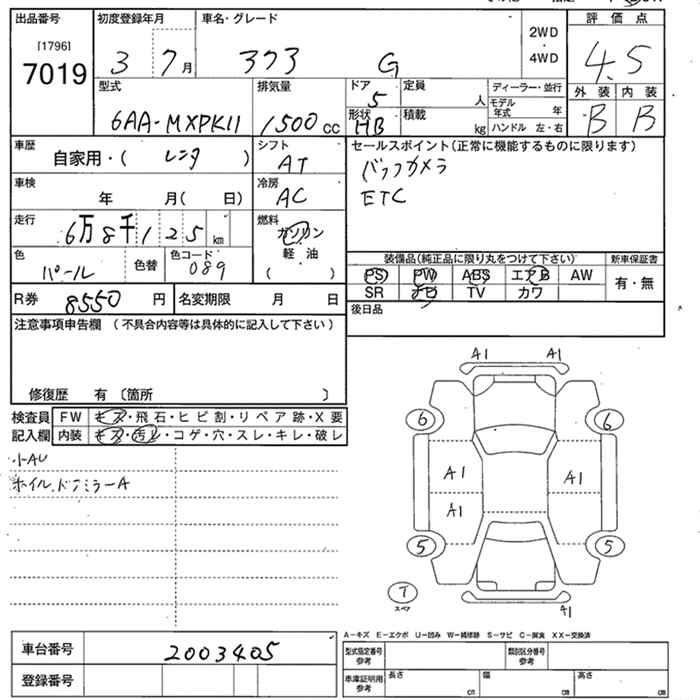 出品番号
[1796]
7019
初度登録年月
3 7月
車名・グレード
ヤリス G
2WD
・
4WD
評価点
4.5
外装 内装
B B
型式
6AA-MXPK11
排気量
1500cc
ドア
5
形状
HB
定員
人
積載
kg
ディーラー・並行
モデル年式 年
ハンドル 左・右
車歴
自家用・( レンタ )
シフト
AT
セールスポイント(正常に機能するものに限ります)
バックカメラ
ETC
車検
年 月( 日)
冷房
AC
走行
6万8千125km
燃料
ガソリン
軽油
( )
色
パール
色替
色コード
089
装備品(純正品に限り丸をつけて下さい)
新車保証書
PS PW ABS エアB AW
SR ナビ TV カワ
有・無
R券 8550円
名変期限 月 日
後日品
注意事項申告欄 (不具合内容等は具体的に記入して下さい)
修復歴 有 〔箇所 〕
検査員
記入欄
FW キズ・飛石・ヒビ割・リペア跡・X要
内装 キズ・汚レ・コゲ・穴・スレ・キレ・破レ
小AU
ホイル.ドアミラーA
A1 A1
6 6
A1 A1
A1
5 5
T
スペア
A1
A-キズ E-エクボ U-凹み W-補修跡 S-サビ C-腐食 XX-交換済
車台番号 2003405
登録番号
型式指定番号
参考
類別区分番号
参考
車庫証明用
参考
長さ cm
幅 cm
高さ cm